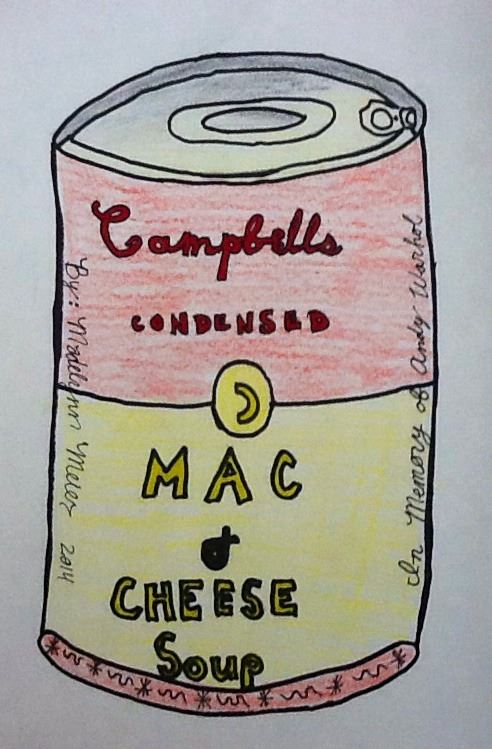 Campbells
CONDENSED
MAC
&
CHEESE
Soup
By: Madelynn Meier 2014
In Memory of Andy Warhol